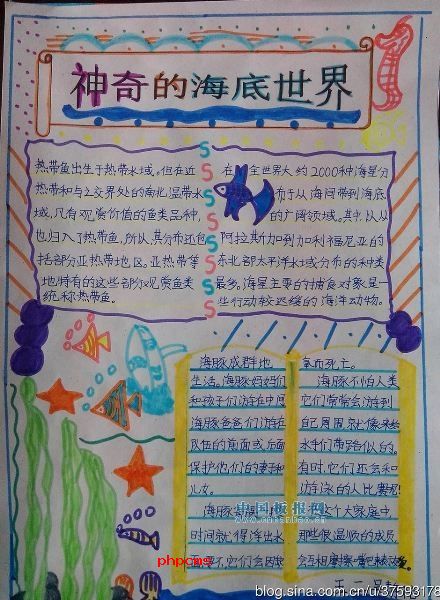 神奇的海底世界
热带鱼出生于热带水域。但在近
热带和与之交界处的南北温带水
域,凡有观赏价值的鱼类品种,
也归入了热带鱼,所以其分布还包
括部分亚热带地区。亚热带等
地特有的这些部分观赏鱼类
统称热带鱼。
在全世界大约2000种海星分
布于从海间带到海底
的广阔领域。其中以从
阿拉斯加到加利福尼亚的
东北部太平洋水域分布的种类
最多。海星主要的捕食对象是一
些行动较迟缓的海洋动物。
SSSSSSSS
海豚成群地
生活。海豚妈妈们
和孩子们游在中间
海豚爸爸们游在
队伍的前面或后面
保护他们的妻子和
儿女。
海豚
时间就得浮出水
它们会因
窒而死亡。
海豚不怕人类
它们常常会游到
自己周围就像来给
水手们带路似的。
有时,它们还会和
游泳的人比赛呢!
这个大家庭中
那些很温顺的成员
会互相摩擦
中国板报网
phpcms
blog.sina.com.cn/u/37593178